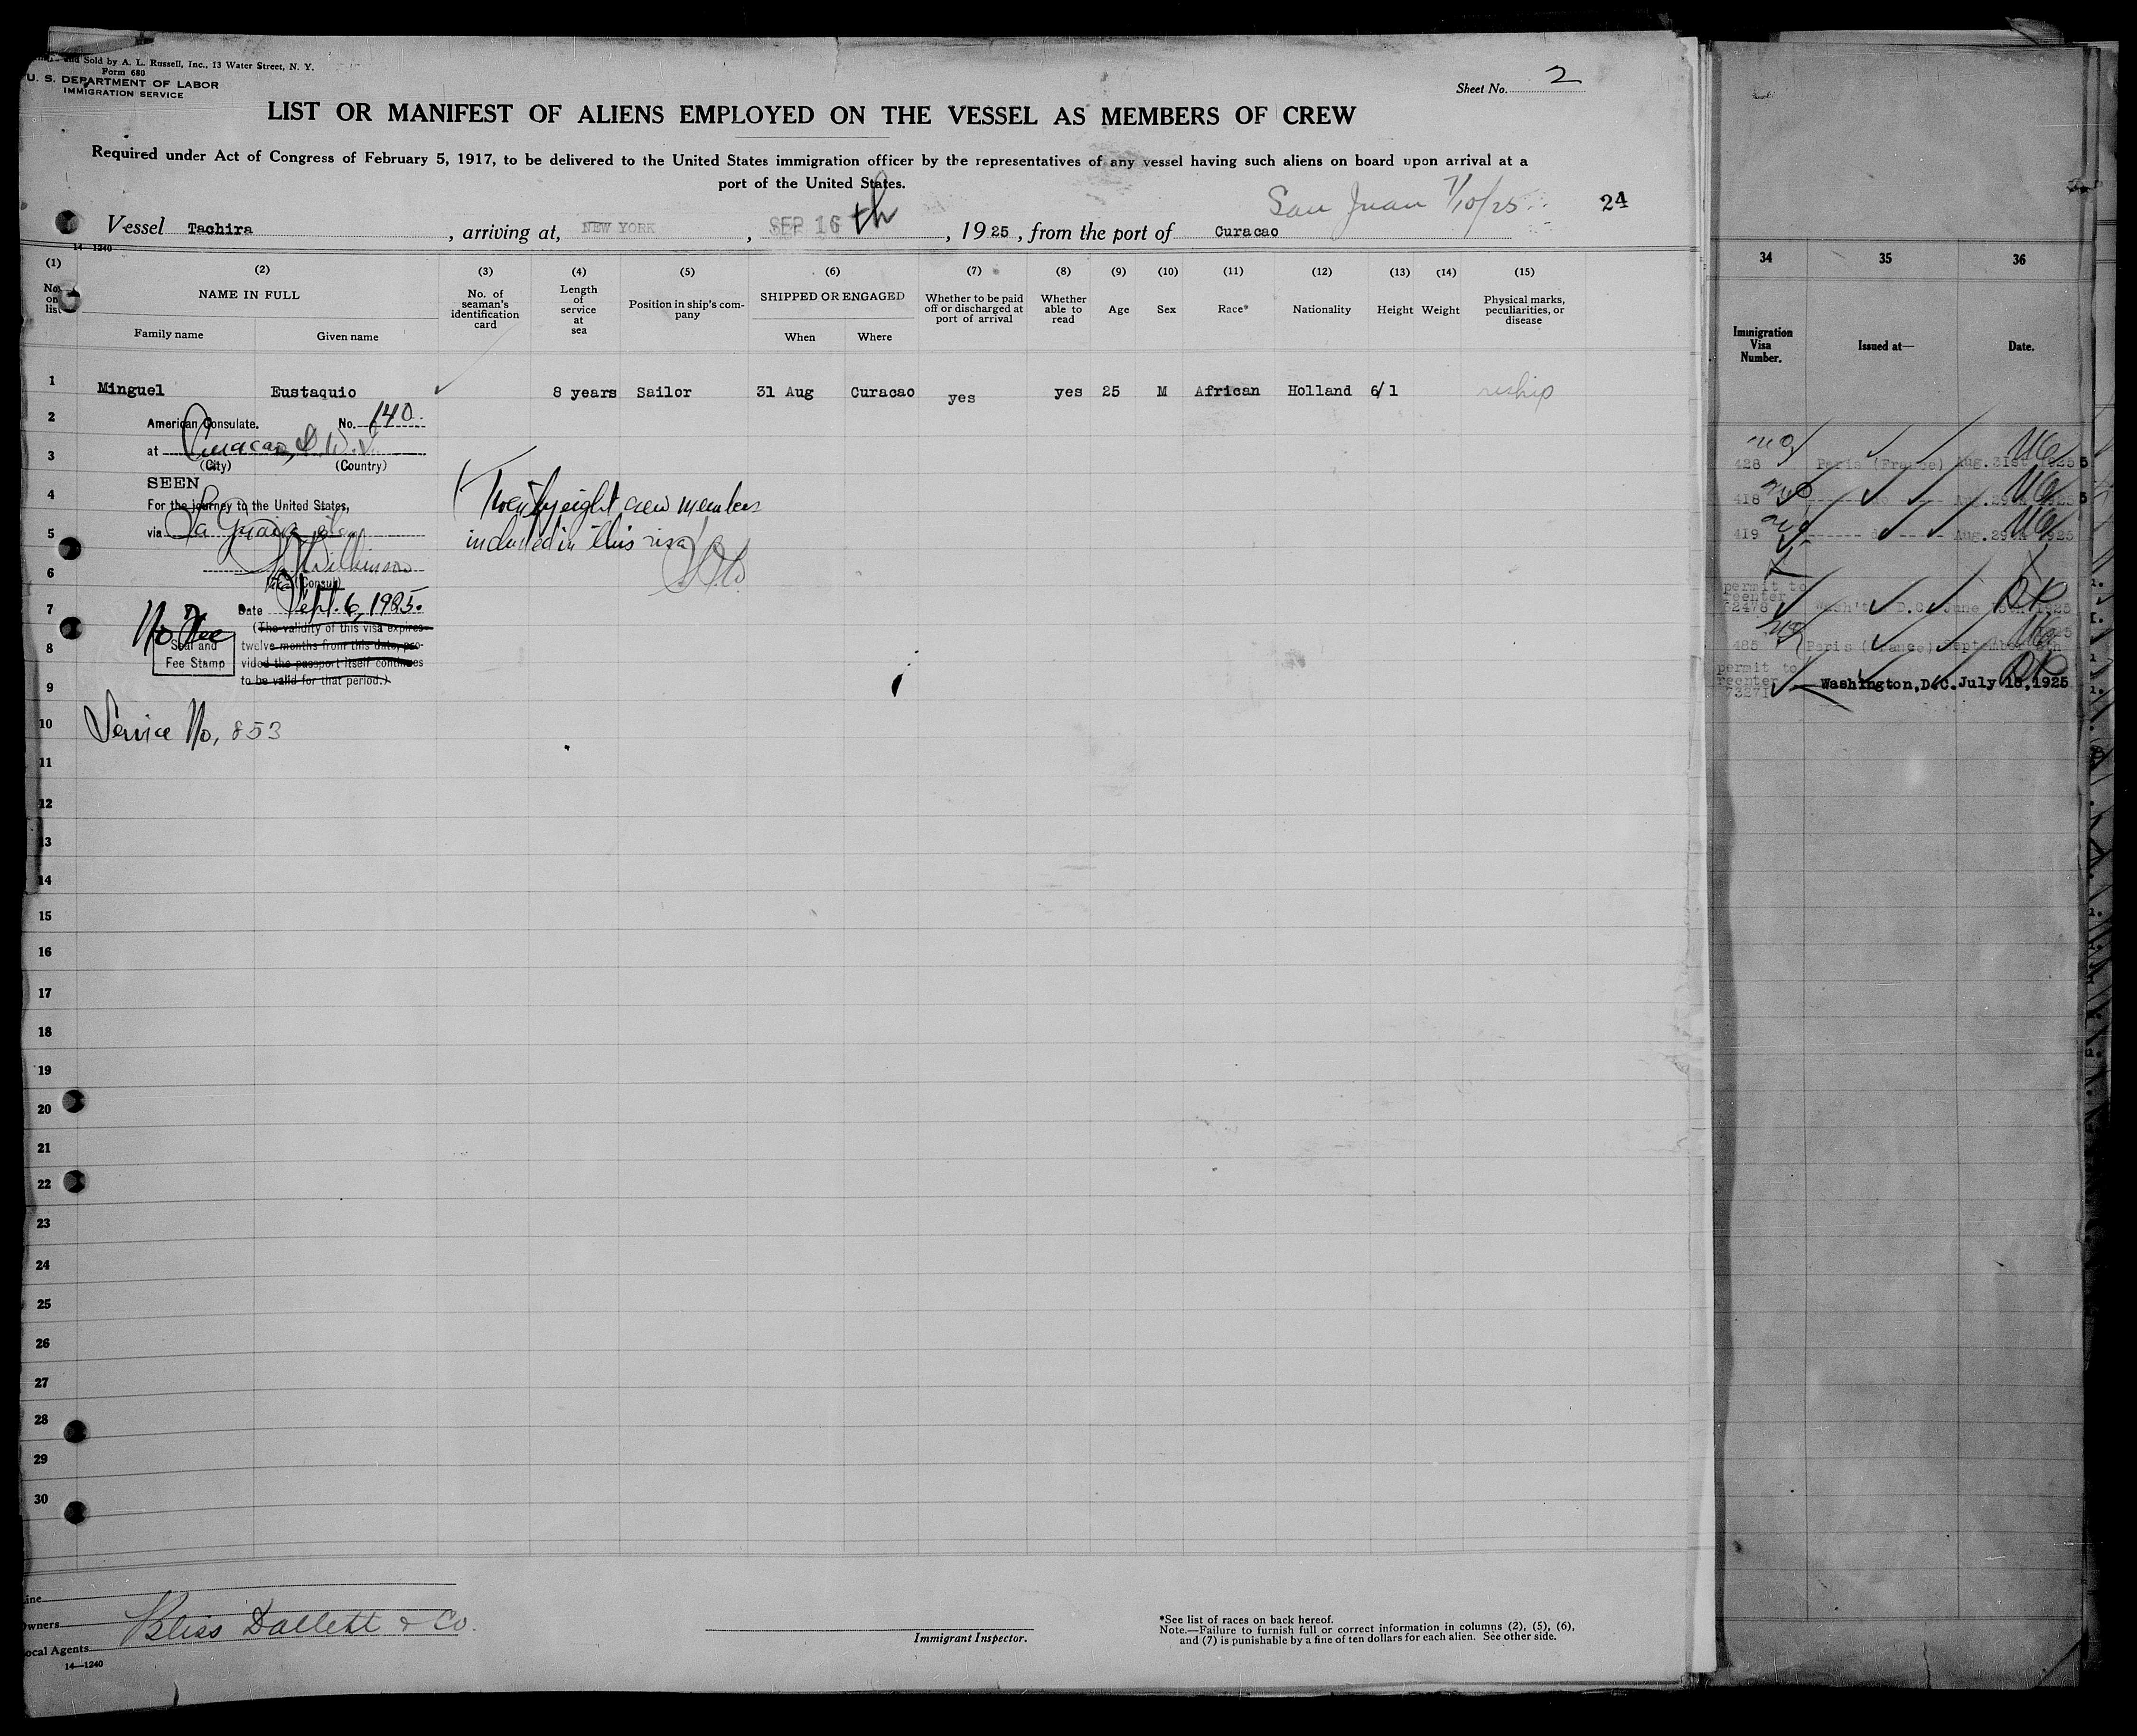 and Sold by A. L. Russell, Inc., 13 Water Street, N. Y.
Form 680
U. S. DEPARTMENT OF LABOR
IMMIGRATION SERVICE
Sheet No. 2
LIST OR MANIFEST OF ALIENS EMPLOYED ON THE VESSEL AS MEMBERS OF CREW
Required under Act of Congress of February 5, 1917, to be delivered to the United States immigration officer by the representatives of any vessel having such aliens on board upon arrival at a
port of the United States.
San Juan 7/10/25
24
Vessel Tachira, arriving at, NEW YORK, SEP 16 th, 1925, from the port of Curacao
14 1240
(1) (2) (3) (4) (5) (6) (7) (8) (9) (10) (11) (12) (13) (14) (15)
No. on list
NAME IN FULL
Family name
Given name
No. of seaman's identification card
Length of service at sea
Position in ship's company
SHIPPED OR ENGAGED
When
Where
Whether to be paid off or discharged at port of arrival
Whether able to read
Age
Sex
Race*
Nationality
Height
Weight
Physical marks, peculiarities, or disease
1 Minguel Eustaquio 8 years Sailor 31 Aug Curacao yes yes 25 M African Holland 6/1 reship
2
American Consulate. No. 140.
3
at Curacao, D.W.I.
(City) (Country)
SEEN
4
For the journey to the United States,
via La Guaira
5
6
Wilkinson
Vice (Consul)
7
Date Sept. 6, 1925.
(The validity of this visa expires
twelve months from this date, pro-
vided the passport itself continues
to be valid for that period.)
No Fee
Seal and
Fee Stamp
8
9
(Twenty eight crew members
included in this visa)
10
Service No, 853
11
12
13
14
15
16
17
18
19
20
21
22
23
24
25
26
27
28
29
30
Line
Owners
Local Agents
Bliss Dallett & Co.
14—1240
Immigrant Inspector.
*See list of races on back hereof.
Note.—Failure to furnish full or correct information in columns (2), (5), (6),
and (7) is punishable by a fine of ten dollars for each alien. See other side.
34 35 36
Immigration Visa Number.
Issued at—
Date.
428 Paris (France) Aug. 31st 1925
418 do Aug. 29th 1925
419 Aug. 29th 1925
permit to
reenter
62478 Wash't D.C. June 15th 1925
485 Paris (France) September 5th
permit to
reenter
73271 Washington, D.C. July 15, 1925